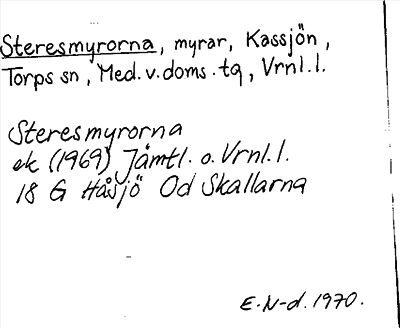 Steresmyrorna, myrar, Kassjön,
Torps sn, Med. v. doms. tg, Vrnl. l.
Steresmyrorna
ek (1969) Jämtl. o. Vrnl. l.
18 G Håsjö Od Skallarna
E. N-d. 1970.